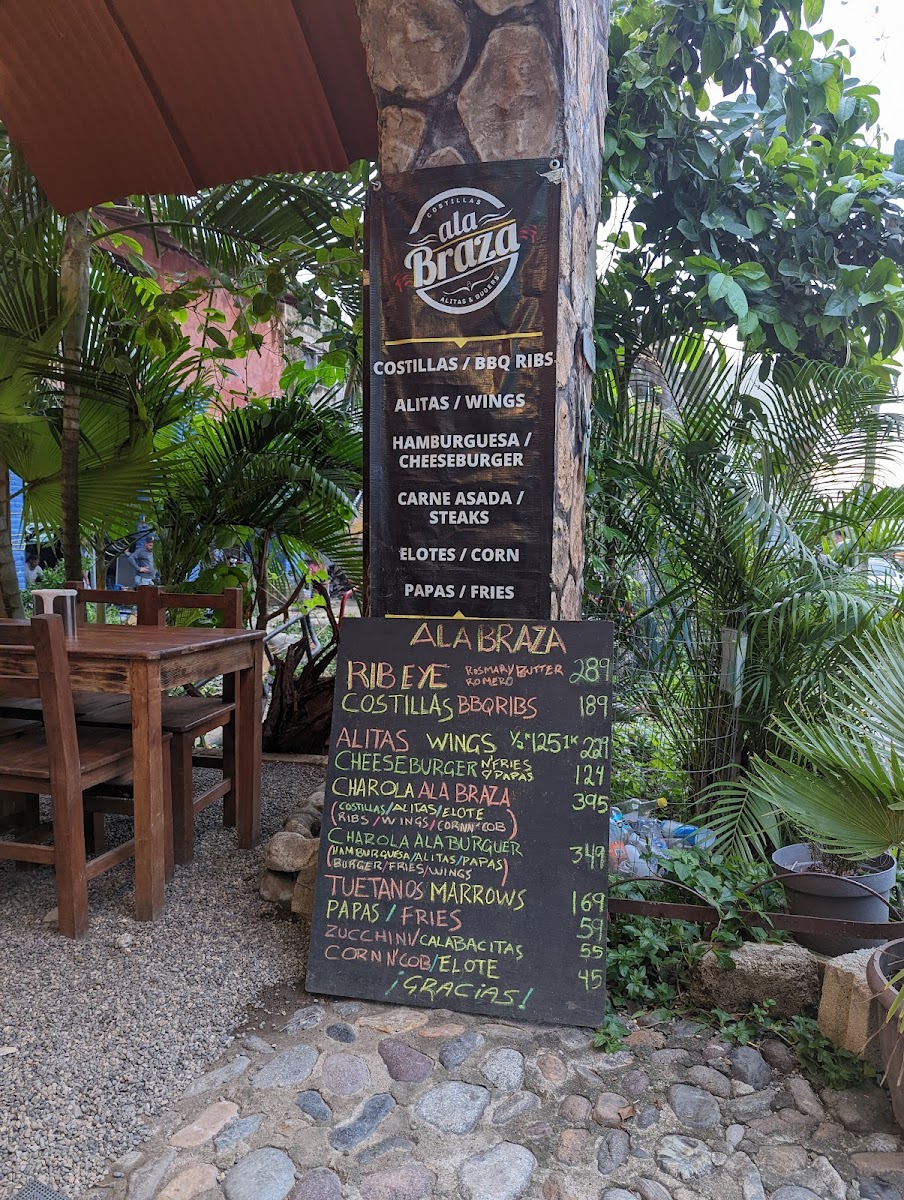 COSTILLAS
ala
Braza
ALITAS & BURGERS
COSTILLAS / BBQ RIBS
ALITAS / WINGS
HAMBURGUESA /
CHEESEBURGER
CARNE ASADA /
STEAKS
ELOTES / CORN
PAPAS / FRIES
ALA BRAZA
RIB EYE ROSMARY BUTTER 289
ROMERO
COSTILLAS BBQ RIBS 189
ALITAS WINGS ½K 125 1K 229
CHEESEBURGER N'FRIES 124
Y PAPAS
CHAROLA ALA BRAZA 395
(COSTILLAS/ALITAS/ELOTE
RIBS / WINGS / CORN N' COB)
CHAROLA ALA BURGUER 349
(HAMBURGUESA/ALITAS/PAPAS
BURGER/FRIES/WINGS)
TUETANOS MARROWS 169
PAPAS / FRIES 59
ZUCCHINI/CALABACITAS 55
CORN N' COB/ELOTE 45
¡GRACIAS!